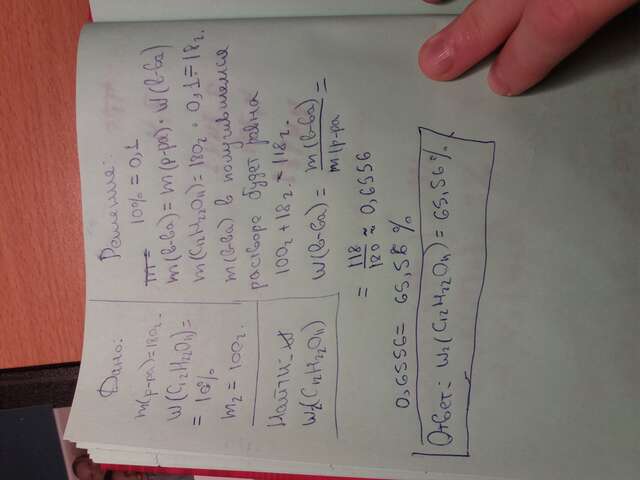 Дано:
m(р-ра)=180г.
W(C12H22O11)=
= 10%
m2 = 100г.
Найти:
W2(C12H22O11)
Решение:
10% = 0,1
m(в-ва) = m(р-ра) · W(в-ва)
m(C12H22O11) = 180г · 0,1 = 18г.
m(в-ва) в получившемся
растворе будет равна
100г + 18г. = 118г.
W(в-ва) = m(в-ва)/m(р-ра =
= 118/180 ≈ 0,6556
0,6556 = 65,56 %
Ответ: W2(C12H22O11) = 65,56%.